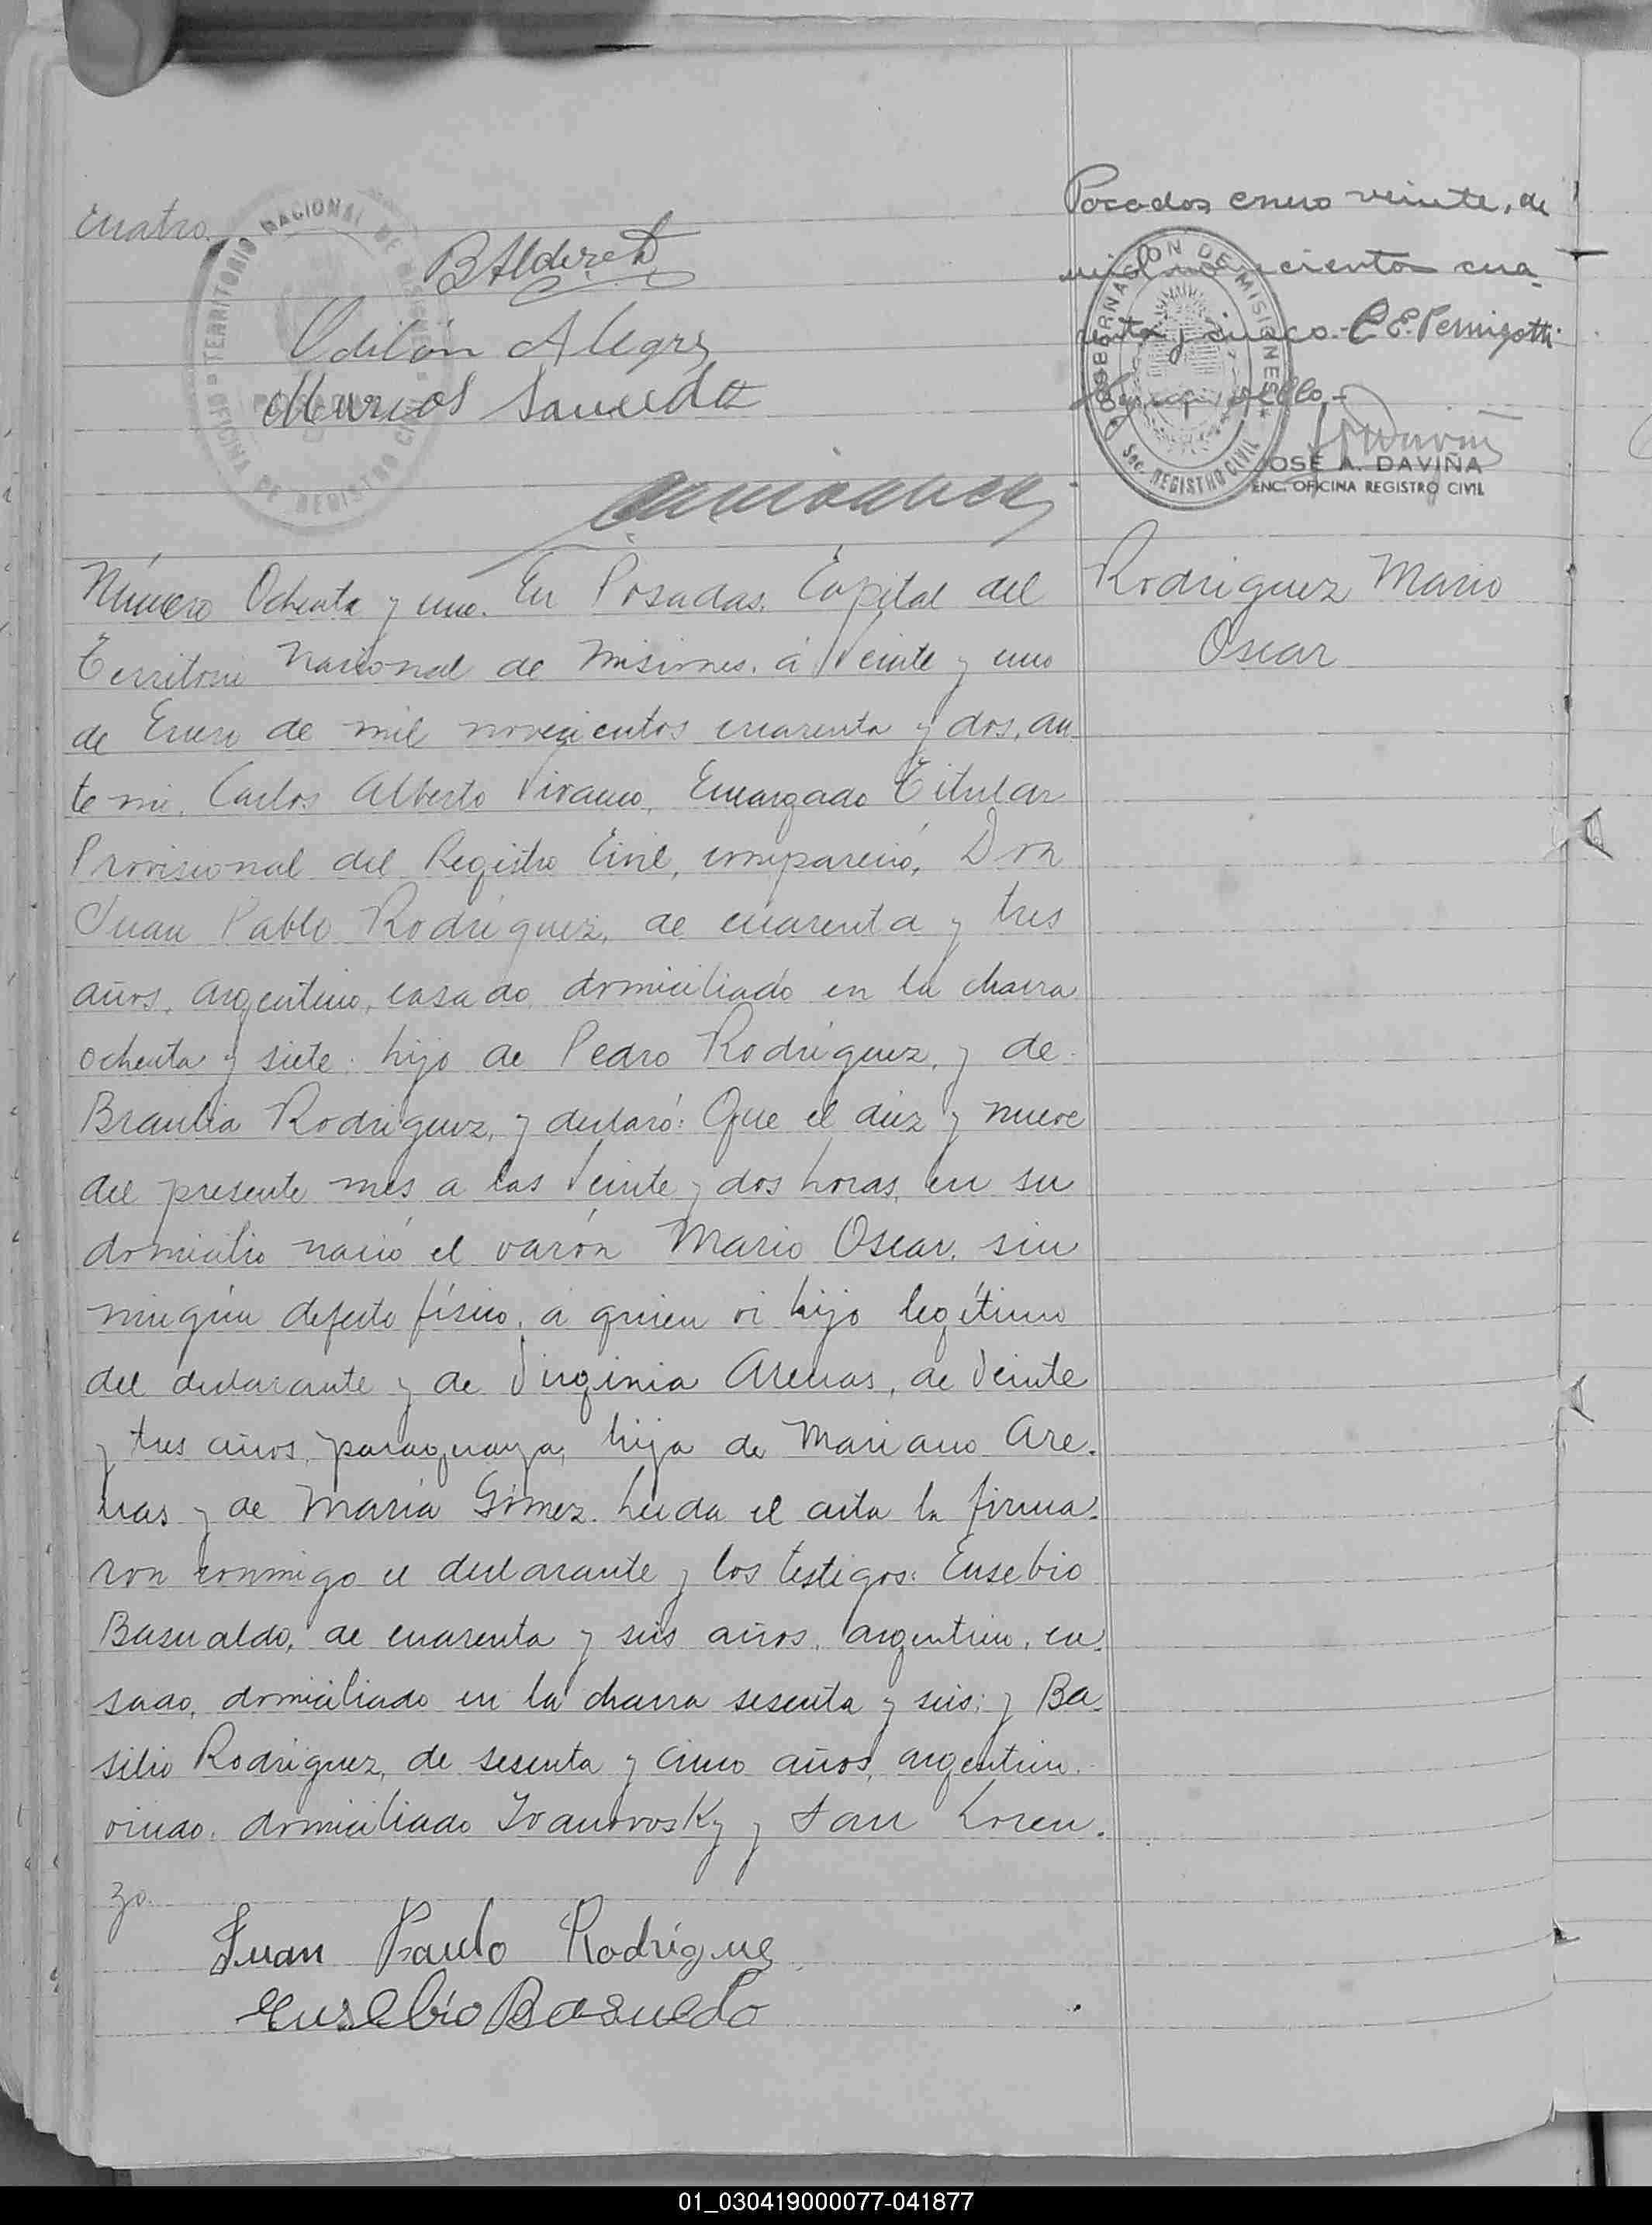 cuatro.
TERRITORIO NACIONAL DE MISIONES
OFICINA DE REGISTRO CIVIL
BAlderete
Odilón Alegre
Marcos Sauceda
Posadas, enero veinte, de
mil novecientos cua-
renta y cinco.- C. E. Pernigotti
GOBERNACION DE MISIONES
Sec. REGISTRO CIVIL
JOSE A. DAVIÑA
ENC. OFICINA REGISTRO CIVIL
Rodriguez Mario
Oscar
Número Ochenta y uno. En Posadas, Capital del
Territorio Nacional de Misiones, á Veinte y uno
de Enero de mil novecientos cuarenta y dos, an
te mi, Carlos Alberto Vivanco, Encargado Titular
Provisional del Registro Civil, compareció, Don
Juan Pablo Rodriguez, de cuarenta y tres
años, argentino, casado, domiciliado en la chacra
ochenta y siete, hijo de Pedro Rodriguez, y de
Braulia Rodriguez, y declaró: Que el diez y nueve
del presente mes a las Veinte y dos horas, en su
domicilio nació el varón Mario Oscar, sin
ningún defecto físico, á quien vi hijo legítimo
del declarante y de Virginia Arenas, de Veinte
y tres años, paraguaya, hija de Mariano Are-
nas y de María Gómez. Leida el acta la firma-
ron conmigo el declarante y los testigos: Eusebio
Basualdo, de cuarenta y seis años, argentino, ca-
sado, domiciliado en la chacra sesenta y seis; y Ba-
silio Rodriguez, de sesenta y cinco años, argentino,
viudo, domiciliado Ivanovosky y San Loren-
zo.
Juan Paulo Rodrigue
Eusebio Basuedo
01_030419000077-041877